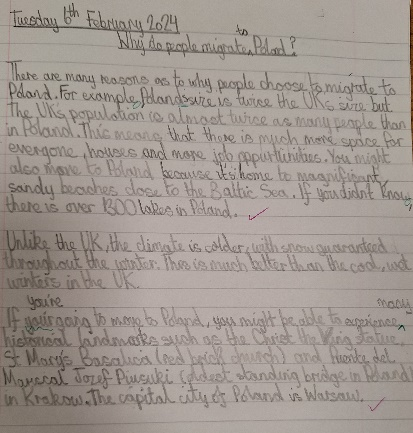 Tuesday 6th February 2024
Why do people migrate to Poland?
There are many reasons as to why people choose to migrate to
Poland. For example, Poland's size is twice the UKs size but
the UK's population is almost twice as many people than
in Poland. This means that there is much more space for
everyone, houses and more job oppurtunities. You might
also move to Poland because it's home to magnificant,
sandy beaches close to the Baltic Sea. If you didnt know,
there is over 1300 lakes in Poland.
Unlike the UK, the climate is colder, with snow guaranteed
throughout the winter. This is much better than the cool, wet
winters in the UK.
you're many
If your going to move to Poland, you might be able to experience
historical landmarks such as the Christ the King statue,
St Marys Basalica (red brick church) and Puente del
Mariscal Jozef Piusuki (oldest standing bridge in Poland)
in Krakow. The capital city of Poland is Warsaw.